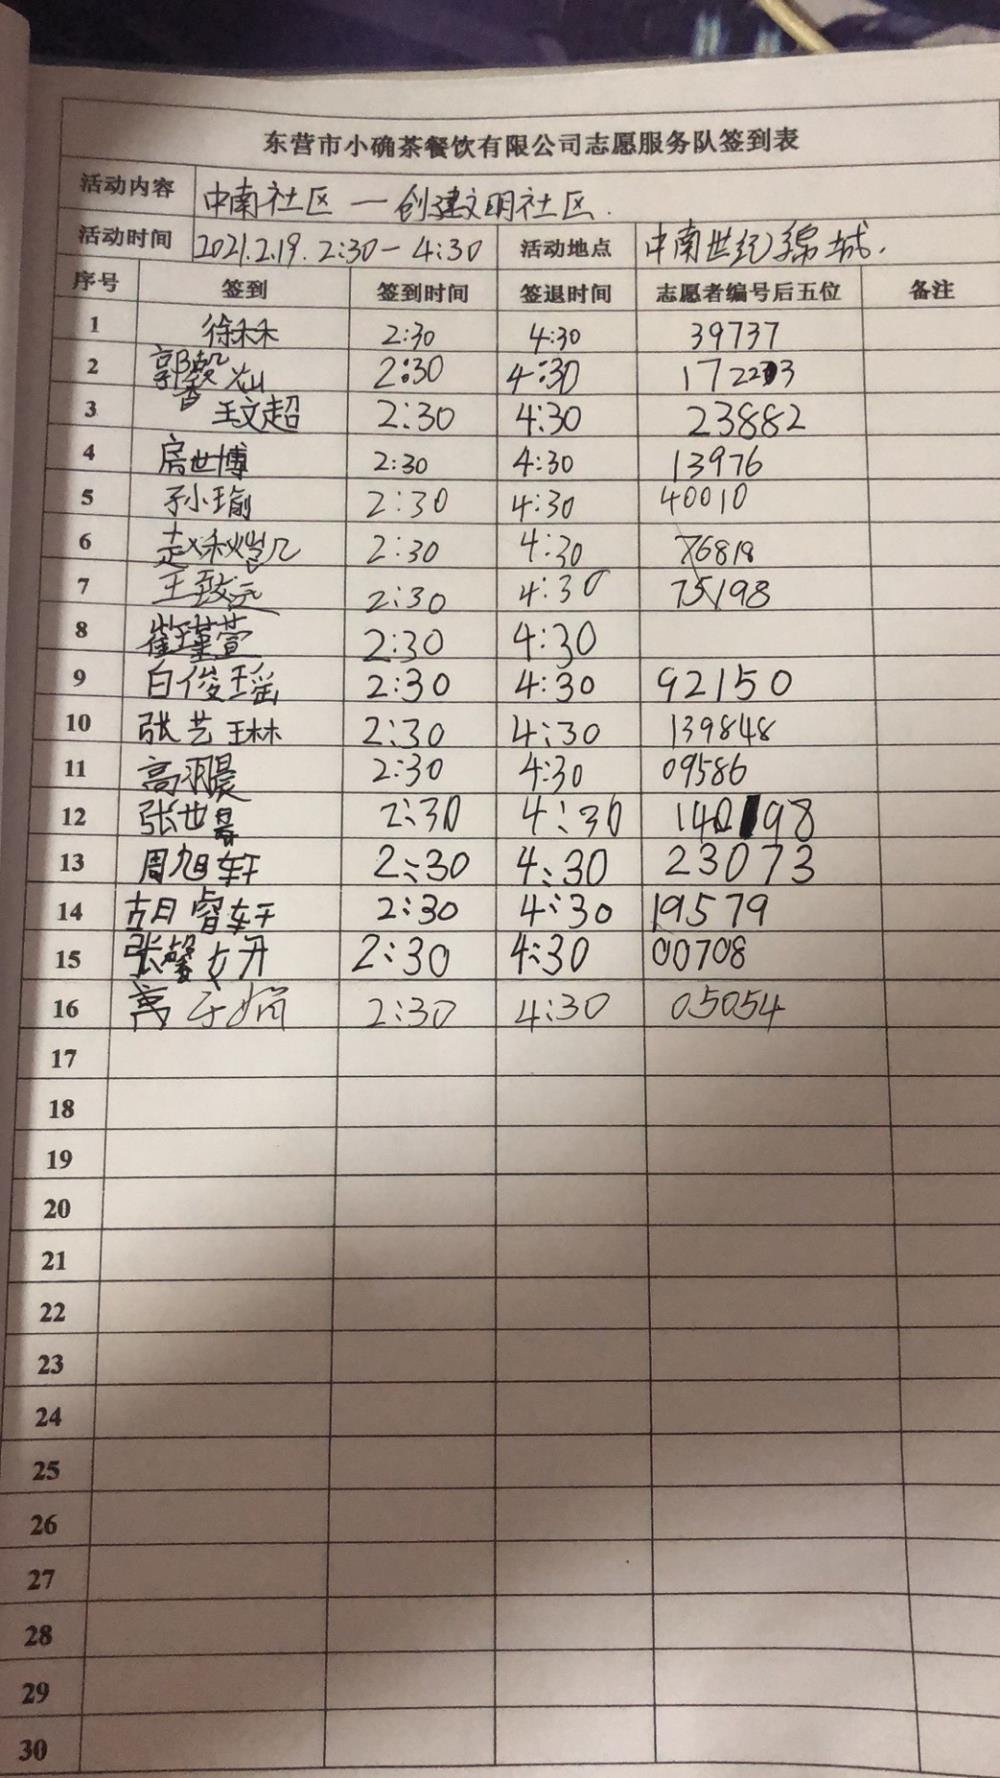 东营市小确茶餐饮有限公司志愿服务队签到表
活动内容 中南社区 — 创建文明社区.
活动时间 2021.2.19. 2:30 - 4:30 活动地点 中南世纪锦城.
序号 签到 签到时间 签退时间 志愿者编号后五位 备注
1 徐秝秝 2:30 4:30 39737
2 郭馨灿 2:30 4:30
3 王文超 2:30 4:30 23882
4 房世博 2:30 4:30 13976
5 孙小瑜 2:30 4:30 40010
6 2:30 4:30 76818
7 王致远 2:30 4:30 75198
8 崔瑾萱 2:30 4:30
9 白俊瑶 2:30 4:30 92150
10 张艺琳 2:30 4:30 139848
11 高羽晨 2:30 4:30 09586
12 张世 2:30 4:30 140198
13 周旭轩 2:30 4:30 23073
14 胡睿轩 2:30 4:30 19579
15 张馨妍 2:30 4:30 00708
16 高子涵 2:30 4:30 05054
17
18
19
20
21
22
23
24
25
26
27
28
29
30